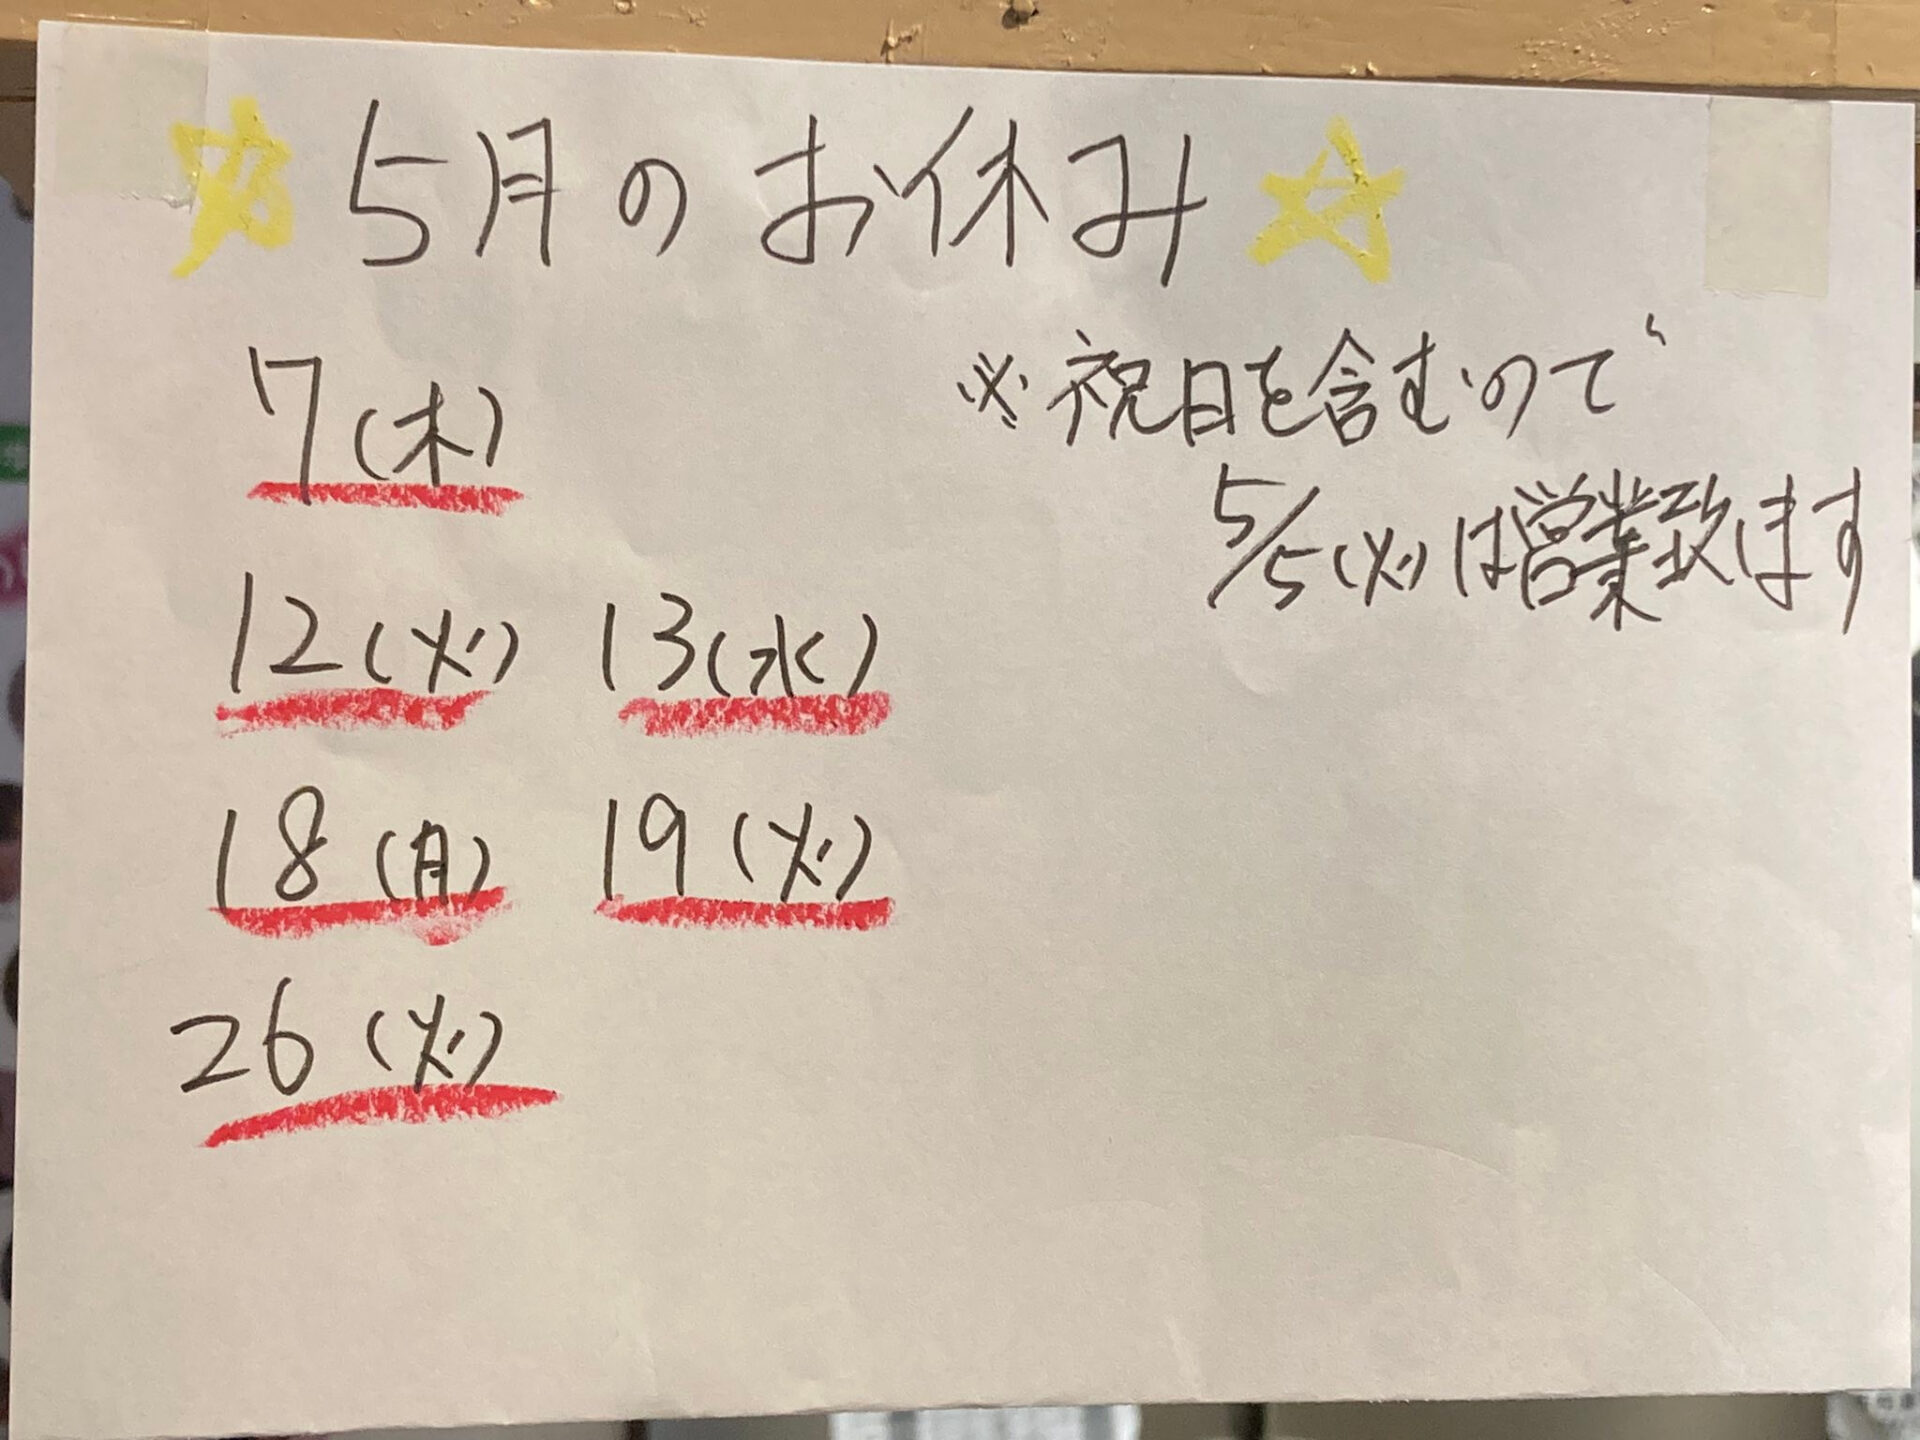 ☆5月のお休み☆
7(木)
※祝日を含むので
5/5(火)は営業致します
12(火) 13(水)
18(月) 19(火)
26(火)